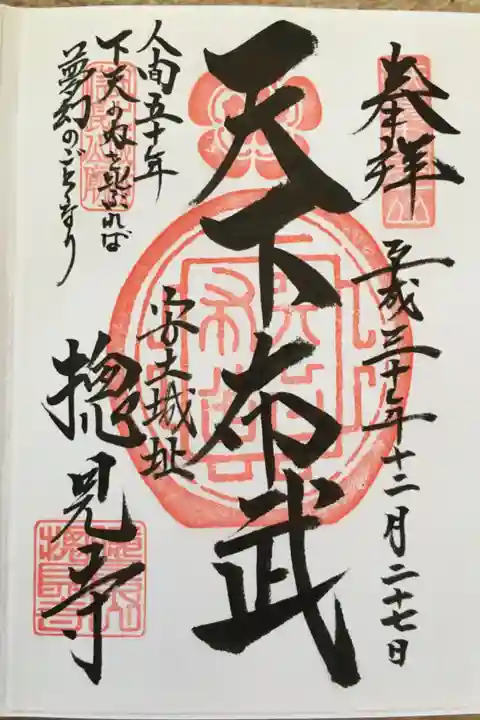 奉拝
平成三十年十二月二十七日
天下布武
安土城址
人間五十年
下天の内をくらぶれば
夢幻のごとくなり
摠見寺